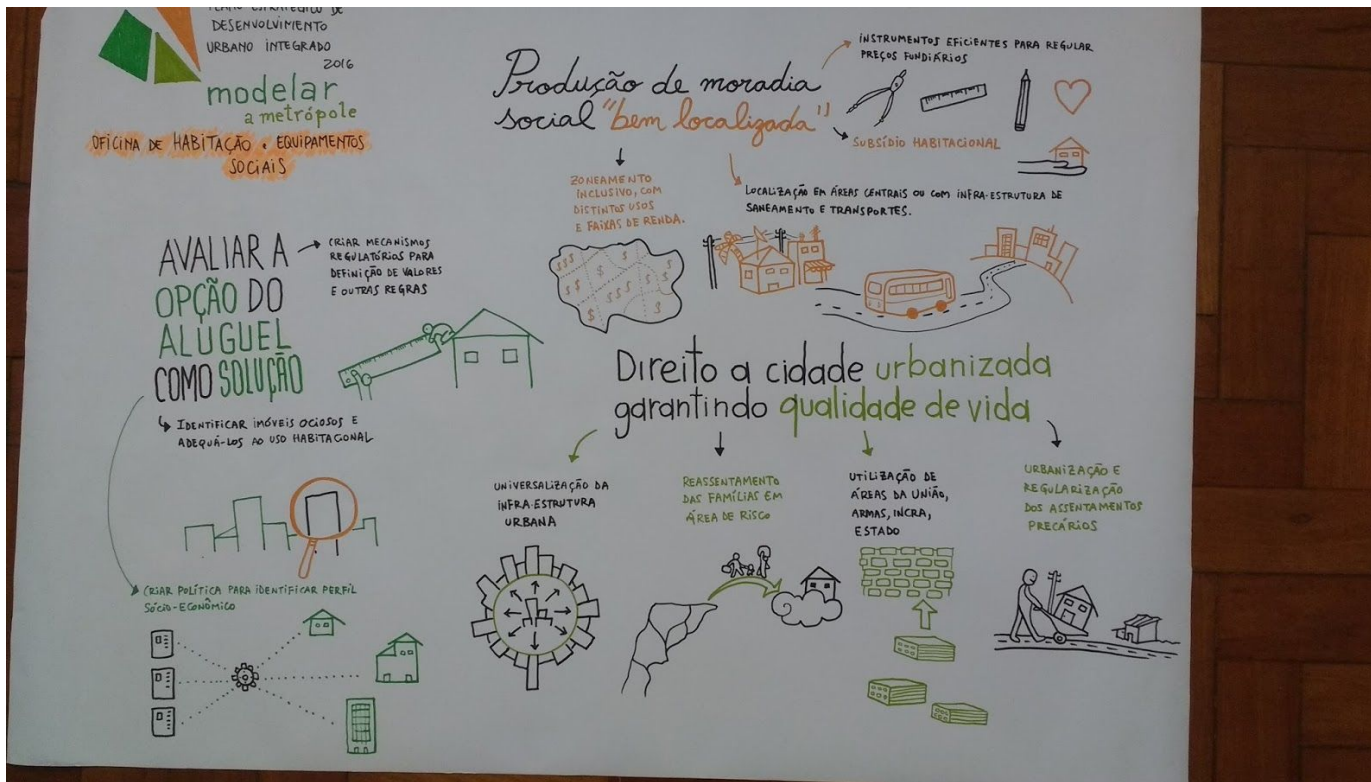 PLANO ESTRATÉGICO DE
DESENVOLVIMENTO
URBANO INTEGRADO
2016
modelar
a metrópole
OFICINA DE HABITAÇÃO e EQUIPAMENTOS
SOCIAIS
Produção de moradia
social "bem localizada"
INSTRUMENTOS EFICIENTES PARA REGULAR
PREÇOS FUNDIÁRIOS
SUBSÍDIO HABITACIONAL
ZONEAMENTO
INCLUSIVO, COM
DISTINTOS USOS
E FAIXAS DE RENDA.
LOCALIZAÇÃO EM ÁREAS CENTRAIS OU COM INFRA-ESTRUTURA DE
SANEAMENTO E TRANSPORTES.
$$$ $ $
$$ $$$ $$
$ $ $
AVALIAR A
OPÇÃO DO
ALUGUEL
COMO SOLUÇÃO
CRIAR MECANISMOS
REGULATÓRIOS PARA
DEFINIÇÃO DE VALORES
E OUTRAS REGRAS
IDENTIFICAR IMÓVEIS OCIOSOS E
ADEQUÁ-LOS AO USO HABITACONAL
CRIAR POLÍTICA PARA IDENTIFICAR PERFIL
SÓCIO-ECONÔMICO
Direito a cidade urbanizada
garantindo qualidade de vida
UNIVERSALIZAÇÃO DA
INFRA-ESTRUTURA
URBANA
REASSENTAMENTO
DAS FAMÍLIAS EM
ÁREA DE RISCO
UTILIZAÇÃO DE
ÁREAS DA UNIÃO,
ARMAS, INCRA,
ESTADO
URBANIZAÇÃO E
REGULARIZAÇÃO
DOS ASSENTAMENTOS
PRECÁRIOS